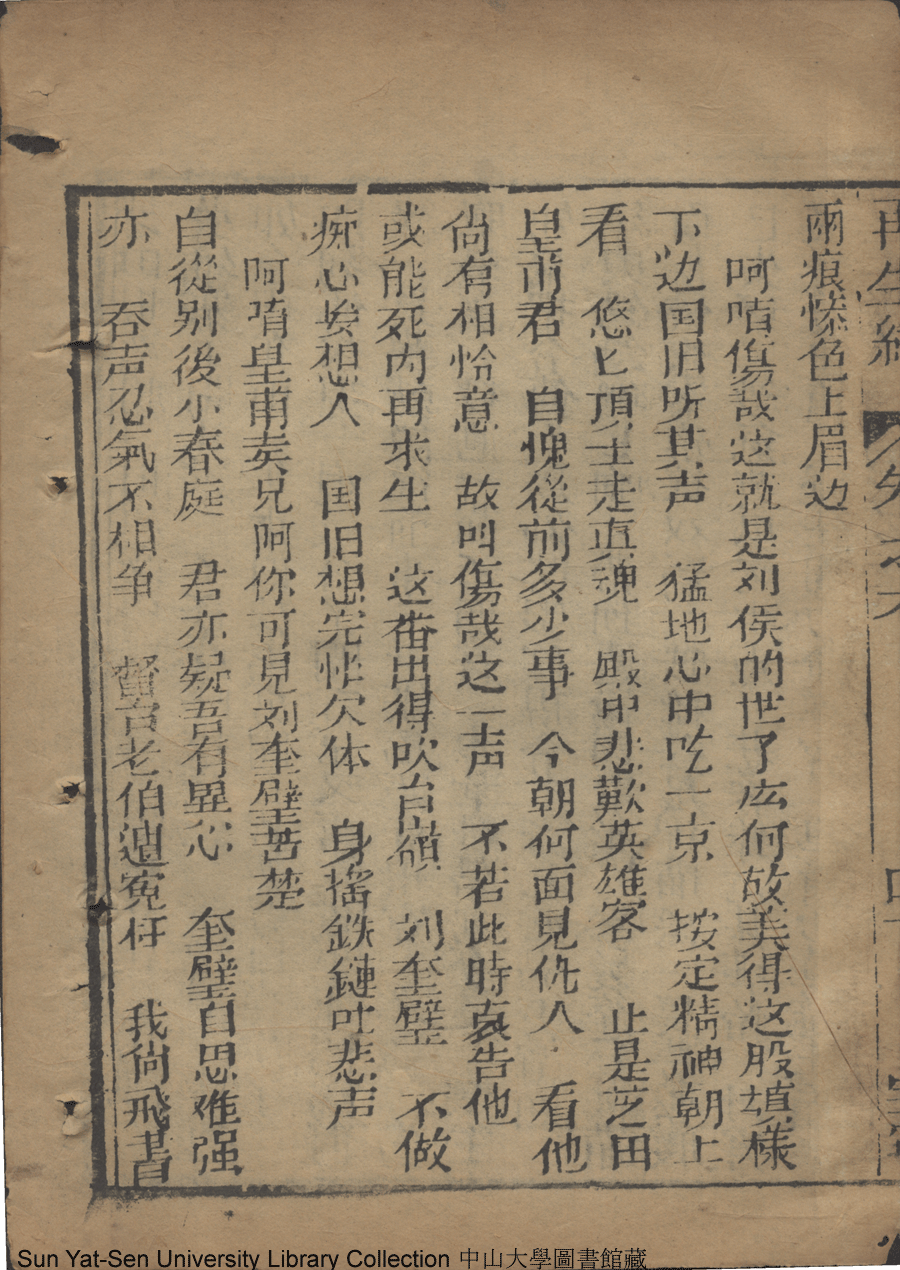 再生緣
雨痕慘色上眉边
呵唶傷哉这就是刘侯的世了広何故美得这股模樣
下边国旧所其声　猛地心中吃一京　按定精神朝上
看　悠匕頂上走真魂　殿中悲歎英雄客　止是芝田
皇甫君　自愧從前多少事　今朝何面見仇人　看他
尙有相怜意　故叫傷哉这一声　不若此時哀告他
或能死内再求生　这番出得吹台嶺　刘奎璧　不做
痴心妄想人　国旧想完忙欠体　身搖鉄鏈吐悲声
呵唶皇甫矣兄呵你可見刘奎壁苦楚
自從别後小春庭　君亦疑吾有異心　奎璧自思难强
亦　吞声忍氣不相争　督台老伯遭寃枉　我尙飛書
Sun Yat-Sen University Library Collection 中山大學圖書館藏